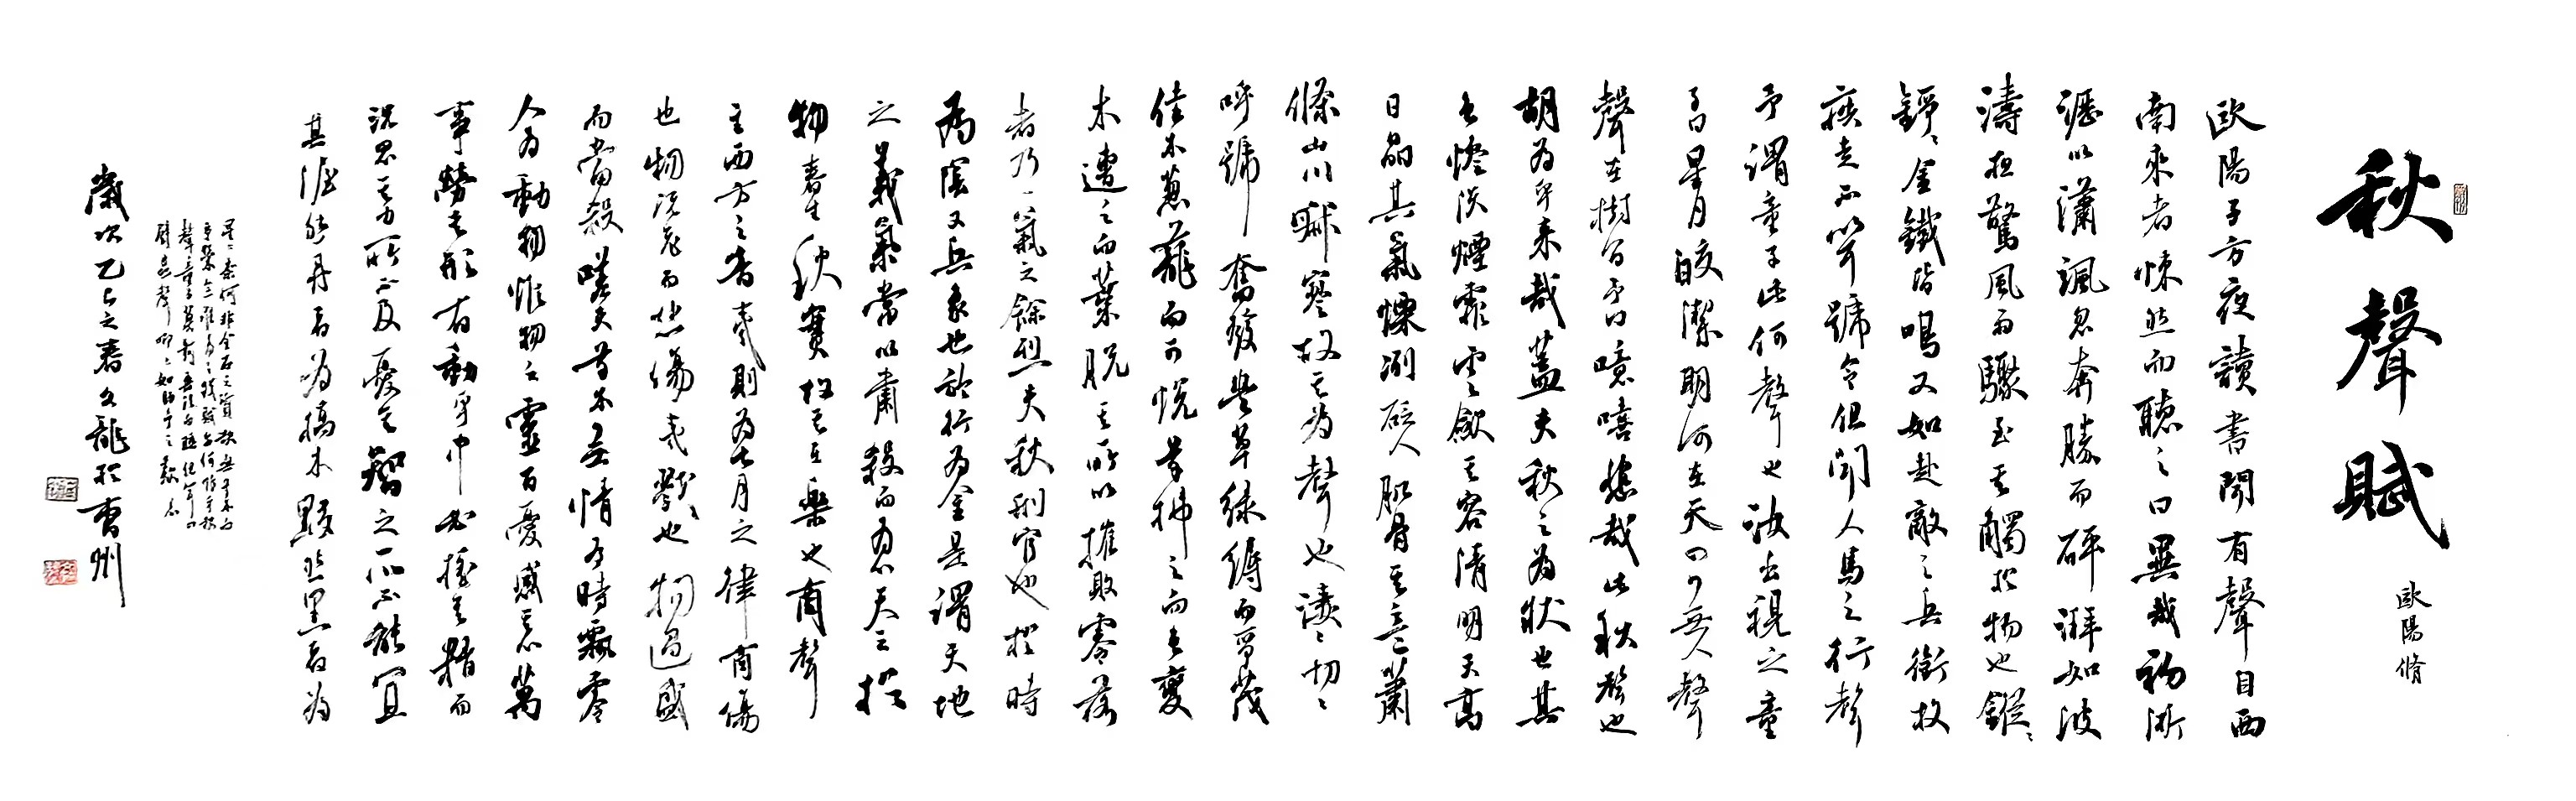 秋聲賦
歐陽脩
歐陽子方夜讀書聞有聲自西
南來者悚然而聽之曰異哉初淅
瀝以瀟颯忽奔騰而砰湃如波
濤夜驚風雨驟至其觸於物也鏦〻
錚〻金鐵皆鳴又如赴敵之兵銜枚
疾走不聞號令但聞人馬之行聲
予謂童子此何聲也汝出視之童
子曰星月皎潔明河在天四無人聲
聲在樹間予曰噫嘻悲哉此秋聲也
胡為乎來哉蓋夫秋之為狀也其
色慘淡煙霏雲斂其容清明天高
日晶其氣慄冽砭人肌骨其意蕭
條山川寂寥故其為聲也淒〻切〻
呼號奮發豐草綠縟而爭茂
佳木蔥蘢而可悅草拂之而色變
木遭之而葉脫其所以摧敗零落
者乃一氣之餘烈夫秋刑官也於時
為陰又兵象也於行為金是謂天地
之義氣常以肅殺而為心天之於
物春生秋實故其在樂也商聲
主西方之音夷則為七月之律商傷
也物既老而悲傷夷戮〻也物過盛
而當殺嗟夫草木無情有時飄零
人為動物惟物之靈百憂感其心萬
事勞其形有動乎中必搖其精而
況思其力所不及憂其智之所不能宜
其渥然丹者為槁木黟然黑者為
星〻奈何非金石之質欲與草木而
爭榮念誰為之戕賊亦何恨乎秋
聲童子莫對垂頭而睡但聞四
壁蟲聲唧〻如助予之歎息
歲次乙巳之春文龍於曹州